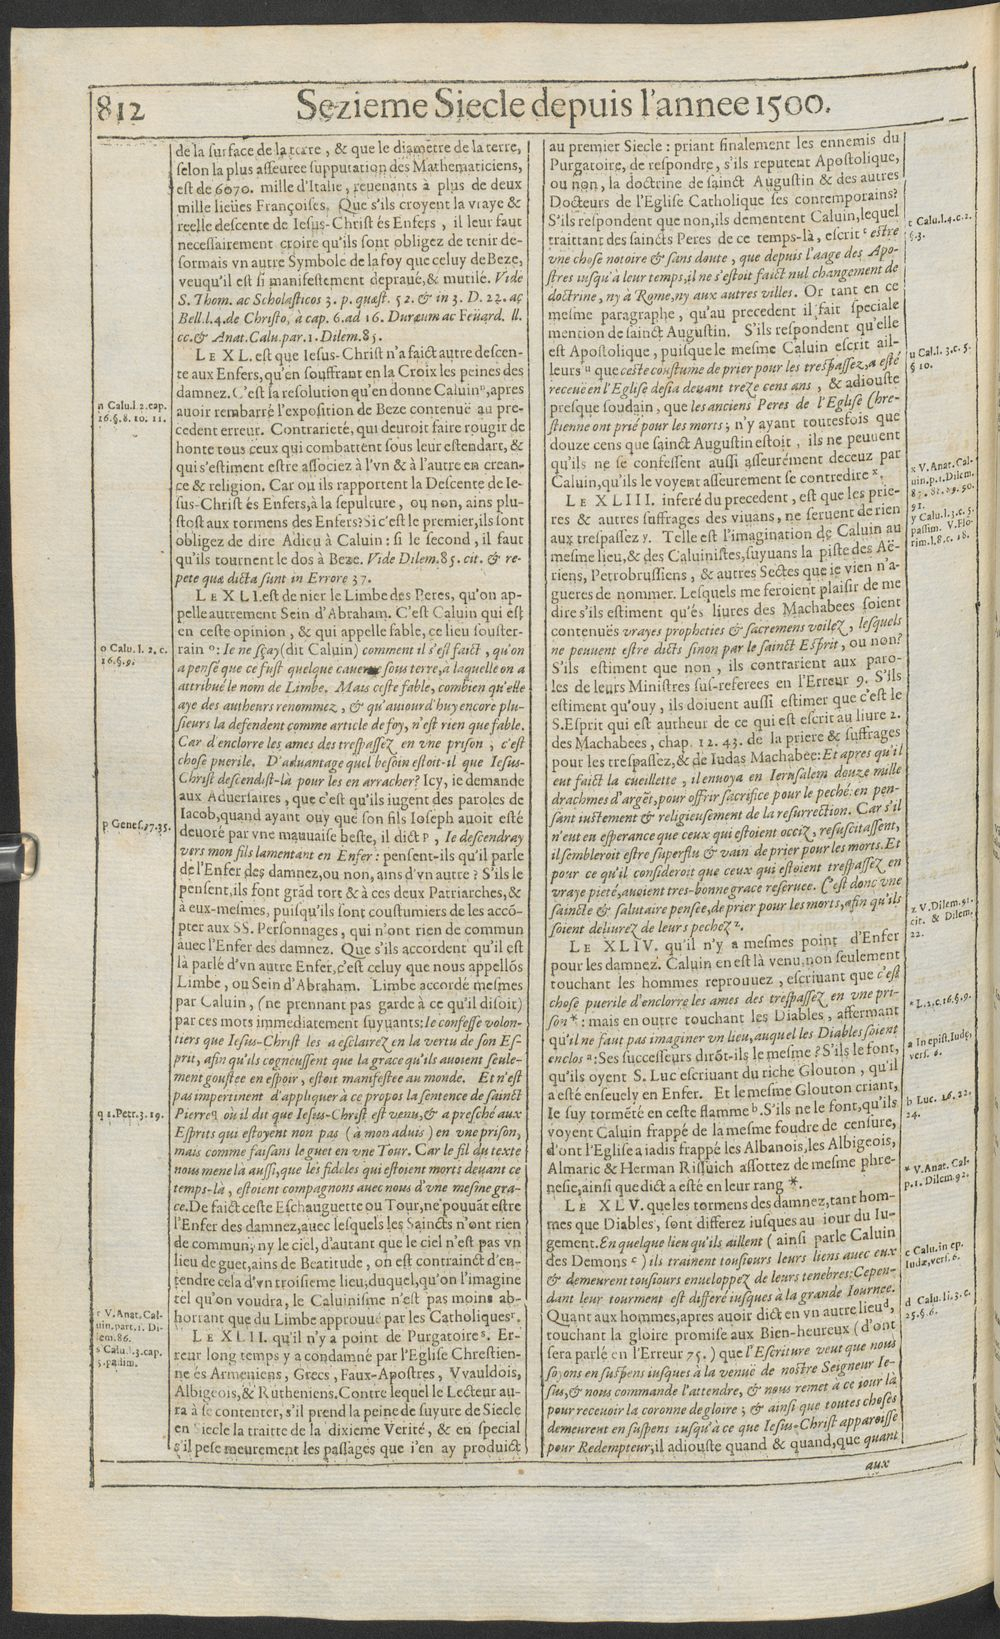 812
Sezieme Siecle depuis l'annee 1500.
de la surface de la terre, & que le diametre de la terre,
selon la plus asseuree supputation des Mathematiciens,
est de 6070. mille d'Italie, reuenants à plus de deux
mille lieües Françoises. Que s'ils croyent la vraye &
reelle descente de Iesus-Christ és Enfers, il leur faut
necessairement croire qu'ils sont obligez de tenir de-
sormais vn autre Symbole de la foy que celuy de Beze,
veuqu'il est si manifestement depraué, & mutilé. Vide
S. Thom. ac Scholasticos 3. p. quæst. 52. & in 3. D. 22. ac
Bell. l. 4. de Christo, à cap. 6. ad 16. Duræum ac Feüard. ll.
cc. & Anat. Calu. par. 1. Dilem. 85.
LE XL. est que Iesus-Christ n'a faict autre descen-
te aux Enfers, qu'en souffrant en la Croix les peines des
damnez. C'est la resolution qu'en donne Caluin n, apres
auoir rembarré l'exposition de Beze contenuë au pre-
cedent erreur. Contrarieté, qui deuroit faire rougir de
honte tous ceux qui combattent sous leur estendart, &
qui s'estiment estre associez à l'vn & à l'autre en crean-
ce & religion. Car ou ils rapportent la Descente de Ie-
sus-Christ és Enfers, à la sepulture, ou non, ains plu-
stost aux tormens des Enfers? Si c'est le premier, ils sont
obligez de dire Adieu à Caluin: si le second, il faut
qu'ils tournent le dos à Beze. Vide Dilem. 85. cit. & re-
pete quæ dicta sunt in Errore 37.
LE XLI. est de nier le Limbe des Peres, qu'on ap-
pelle autrement Sein d'Abraham. C'est Caluin qui est
en ceste opinion, & qui appelle fable, ce lieu souster-
rain o: Ie ne sçay (dit Caluin) comment il s'est faict, qu'on
a pensé que ce fust quelque cauerne sous terre, à laquelle on a
attribué le nom de Limbe. Mais ceste fable, combien qu'elle
aye des autheurs renommez, & qu'auiourd'huy encore plu-
sieurs la defendent comme article de foy, n'est rien que fable.
Car d'enclorre les ames des trespassez en vne prison, c'est
chose puerile. D'aduantage quel besoin estoit-il que Iesus-
Christ descendist-là pour les en arracher? Icy, ie demande
aux Aduersaires, que c'est qu'ils iugent des paroles de
Iacob, quand ayant ouy que son fils Ioseph auoit esté
deuoré par vne mauuaise beste, il dict p, Ie descendray
vers mon fils lamentant en Enfer: pensent-ils qu'il parle
de l'Enfer des damnez, ou non, ains d'vn autre? S'ils le
pensent, ils font grãd tort & à ces deux Patriarches, &
à eux-mesmes, puisqu'ils sont coustumiers de les accõ-
pter aux SS. Personnages, qui n'ont rien de commun
auec l'Enfer des damnez. Que s'ils accordent qu'il est
là parlé d'vn autre Enfer, c'est celuy que nous appellõs
Limbe, ou Sein d'Abraham. Limbe accordé mesmes
par Caluin, (ne prennant pas garde à ce qu'il disoit)
par ces mots immediatement suyuants: Ie confesse volon-
tiers que Iesus-Christ les a esclairez en la vertu de son Es-
prit, afin qu'ils cogneussent que la grace qu'ils auoient seule-
ment goustee en espoir, estoit manifestee au monde. Et n'est
pas impertinent d'appliquer à ce propos la sentence de sainct
Pierre q, où il dit que Iesus-Christ est venu, & a presché aux
Esprits qui estoyent non pas (à mon aduis) en vne prison,
mais comme faisans le guet en vne Tour. Car le fil du texte
nous mene là aussi, que les fideles qui estoient morts deuant ce
temps-là, estoient compagnons auec nous d'vne mesme gra-
ce. De faict ceste Eschauguette ou Tour, ne pouuãt estre
l'Enfer des damnez, auec lesquels les Saincts n'ont rien
de commun, ny le ciel, d'autant que le ciel n'est pas vn
lieu de guet, ains de Beatitude, on est contrainct d'en-
tendre cela d'vn troisieme lieu, duquel, qu'on l'imagine
tel qu'on voudra, le Caluinisme n'est pas moins ab-
horrant que du Limbe approuué par les Catholiques r.
LE XLII. qu'il n'y a point de Purgatoire s. Er-
reur long temps y a condamné par l'Eglise Chrestien-
ne és Armeniens, Grecs, Faux-Apostres, Vvauldois,
Albigeois, & Rutheniens. Contre lequel le Lecteur au-
ra à se contenter, s'il prend la peine de suyure de Siecle
en Siecle la traitte de la dixieme Verité, & en special
s'il pese meurement les passages que i'en ay produict
n Calu. l. 2. cap.
16. §. 8. 10. 11.
o Calu. l. 2. c.
16. §. 9.
p Genes. 37. 35.
q 1. Petr. 3. 19.
r V. Anat. Cal-
uin. part. 1. Di-
lem. 86.
s Calu. l. 3. cap.
5. passim.
au premier Siecle: priant finalement les ennemis du
Purgatoire, de respondre, s'ils reputent Apostolique,
ou non, la doctrine de sainct Augustin & des autres
Docteurs de l'Eglise Catholique ses contemporains?
S'ils respondent que non, ils dementent Caluin, lequel
traittant des saincts Peres de ce temps-là, escrit t estre
vne chose notoire & sans doute, que depuis l'aage des Apo-
stres iusqu'à leur temps, il ne s'estoit faict nul changement de
doctrine, ny à Rome, ny aux autres villes. Or tant en ce
mesme paragraphe, qu'au precedent il fait speciale
mention de sainct Augustin. S'ils respondent qu'elle
est Apostolique, puisque le mesme Caluin escrit ail-
leurs u que ceste coustume de prier pour les trespassez, a esté
receuë en l'Eglise desia deuant treze cens ans, & adiouste
presque soudain, que les anciens Peres de l'Eglise Chre-
stienne ont prié pour les morts; n'y ayant toutesfois que
douze cens que sainct Augustin estoit, ils ne peuuent
qu'ils ne se confessent aussi asseurément deceuz par
Caluin, qu'ils le voyent asseurement se contredire x.
LE XLIII. inferé du precedent, est que les prie-
res & autres suffrages des viuans, ne seruent de rien
aux trespassez y. Telle est l'imagination de Caluin au
mesme lieu, & des Caluinistes, suyuans la piste des Aë-
riens, Petrobrussiens, & autres Sectes que ie vien n'a-
gueres de nommer. Lesquels me feroient plaisir de me
dire s'ils estiment qu'és liures des Machabees soient
contenuës vrayes propheties & sacremens voilez, lesquels
ne peuuent estre dicts sinon par le sainct Esprit, ou non?
S'ils estiment que non, ils contrarient aux paro-
les de leurs Ministres sus-referees en l'Erreur 9. S'ils
estiment qu'ouy, ils doiuent aussi estimer que c'est le
S. Esprit qui est autheur de ce qui est escrit au liure 2.
des Machabees, chap. 12. 43. de la priere & suffrages
pour les trespassez, & de Iudas Machabee: Et apres qu'il
eut faict la cueillette, il enuoya en Ierusalem douze mille
drachmes d'argẽt, pour offrir sacrifice pour le peché: en pen-
sant iustement & religieusement de la resurrection. Car s'il
n'eut en esperance que ceux qui estoient occiz, resuscitassent,
il sembleroit estre superflu & vain de prier pour les morts. Et
pour ce qu'il consideroit que ceux qui estoient trespassez en
vraye pieté, auoient tres-bonne grace reseruee. C'est donc vne
saincte & salutaire pensee, de prier pour les morts, afin qu'ils
soient deliurez de leurs pechez z.
LE XLIV. qu'il n'y a mesmes point d'Enfer
pour les damnez. Caluin en est là venu, non seulement
touchant les hommes reprouuez, escriuant que c'est
chose puerile d'enclorre les ames des trespassez en vne pri-
son *: mais en outre touchant les Diables, affermant
qu'il ne faut pas imaginer vn lieu, auquel les Diables soient
enclos a: Ses successeurs dirõt-ils le mesme? S'ils le font,
qu'ils oyent S. Luc escriuant du riche Glouton, qu'il
a esté enseuely en Enfer. Et le mesme Glouton criant,
Ie suy tormẽté en ceste flamme b. S'ils ne le font, qu'ils
voyent Caluin frappé de la mesme foudre de censure,
d'ont l'Eglise a iadis frappé les Albanois, les Albigeois,
Almaric & Herman Rissuich assottez de mesme phre-
nesie, ainsi que dict a esté en leur rang *.
LE XLV. que les tormens des damnez, tant hom-
mes que Diables, sont differez iusques au iour du Iu-
gement. En quelque lieu qu'ils aillent (ainsi parle Caluin
des Demons c) ils trainent tousiours leurs liens auec eux
& demeurent tousiours enueloppez de leurs tenebres: Cepen-
dant leur tourment est differé iusques à la grande Iournee.
Quant aux hommes, apres auoir dict en vn autre lieu d,
touchant la gloire promise aux Bien-heureux (d'ont
sera parlé en l'Erreur 75.) que l'Escriture veut que nous
soyons en suspens iusques à la venuë de nostre Seigneur Ie-
sus, & nous commande l'attendre, & nous remet à ce iour là
pour receuoir la coronne de gloire; & ainsi que toutes choses
demeurent en suspens iusqu'à ce que Iesus-Christ apparoisse
pour Redempteur; il adiouste quand & quand, que quant
aux
t Calu. l. 4. c. 2.
§. 3.
u Cal. l. 3. c. 5.
§ 10.
x V. Anat. Cal-
uin. p. 1. Dilem.
87. 88. 89. 90.
91.
y Calu. l. 3. c. 5.
passim. V. Flo-
rim. l. 8. c. 18.
z V. Dilem. 91.
cit. & Dilem.
22.
* L. 2. c. 16. §. 9.
a In epist. Iudę,
vers. 6.
b Luc. 16. 22.
24.
* V. Anat. Cal-
p. 1. Dilem 92.
c Calu. in ep.
Iudæ, vers. 6.
d Calu. li. 3. c.
25. §. 6.